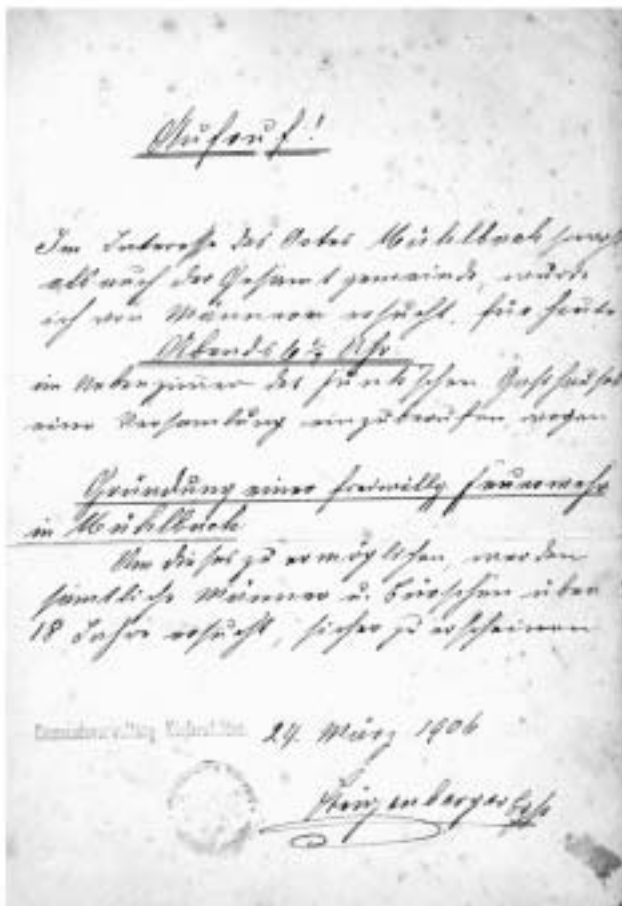 Aufruf!
Im Interesse des Ortes Mühlbach sowohl
als auch der Gesamtgemeinde, wurde
ich von Männern ersucht, für heute
Abends 6½ Uhr
im Nebenzimmer des Funk'schen Gasthauses
eine Versammlung einzuberufen, wegen
Gründung einer freiwillg. Feuerwehr
in Mühlbach
Um dieses zu ermöglichen, werden
sämtliche Männer u. Burschen über
18 Jahre ersucht, sicher zu erscheinen
Gemeindeverwaltung 24. März 1906